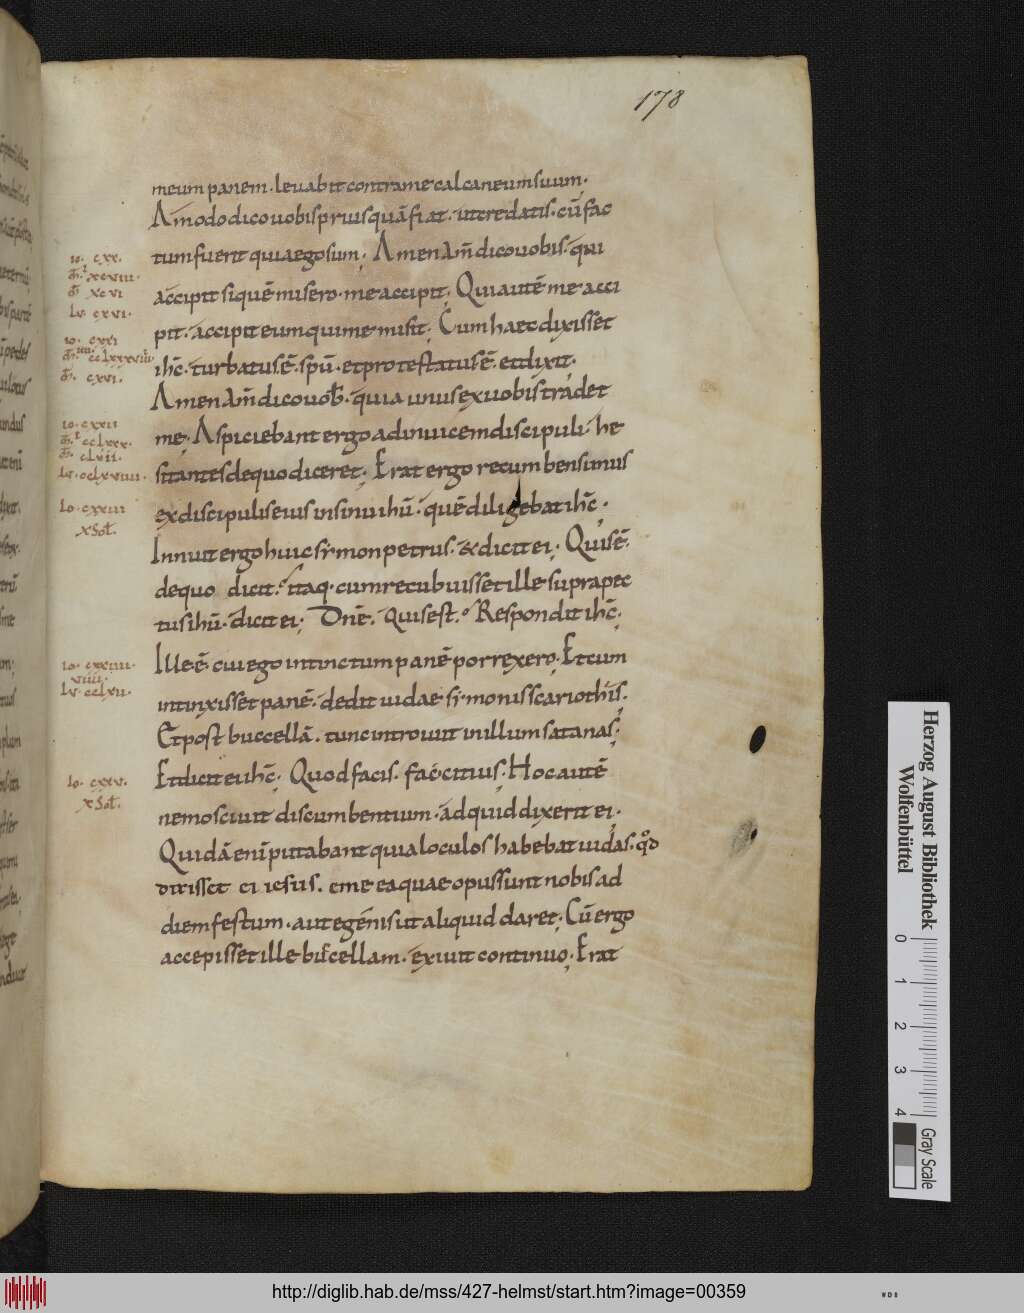 178
meum panem · levabit contra me calcaneum suum ·
Amodo dico vobis priusquā fiat · ut credatis · cū fac
tum fuerit quia ego sum · Amen am̄ dico vobis · qui
io · cxx ·
xcviii ·
accipit si quē misero · me accipit · Qui autē me acci
xcvi
Lu · cxvi ·
pit · accipit eum qui me misit · Cum haec dixisset
io · cxxi
cclxxxviiii
ihc̄ · turbatus ē · spū · et protestatus ē · et dixit ·
cxvi ·
Amen am̄ dico vob̄ · quia unus ex vobis tradet
io · cxxii
cclxxx ·
me · Aspiciebant ergo ad invicem discipuli · he
clvii ·
Lu · cclxviiii ·
sitantes de quo diceret · Erat ergo recumbens unus
Io · cxxiii
ex discipulis eius in sinu ihū · quē diligebat ihc̄ ·
x Sol ·
Innuit ergo huic simon petrus · & dicit ei · Quis ē ·
de quo dicit · Itaq · cum recubuisset ille supra pec
tus ihū · dicit ei · Dn̄e · quis est · Respondit ihc̄ ·
io · cxxiiii ·
Ille ē cui ego intinctum panē porrexero · Et cum
viiii ·
Lu · cclxii ·
intinxisset panē · dedit iudae simonis scariothis ·
Et post buccellā · tunc introivit in illum satanas ·
Io · cxxv ·
Et dicit ei ihc̄ · Quod facis · fac citius · Hoc autē
x Sol ·
nemo scivit discumbentium · ad quid dixerit ei ·
Quidā enī putabant quia loculos habebat iudas · qd
dixisset ei iesus · eme ea quae opus sunt nobis ad
diem festum · aut egenis ut aliquid daret · Cū ergo
accepisset ille buccellam · exivit continuo · Erat
Herzog August Bibliothek
Wolfenbüttel
0 1 2 3 4
Gray Scale
http://diglib.hab.de/mss/427-helmst/start.htm?image=00359